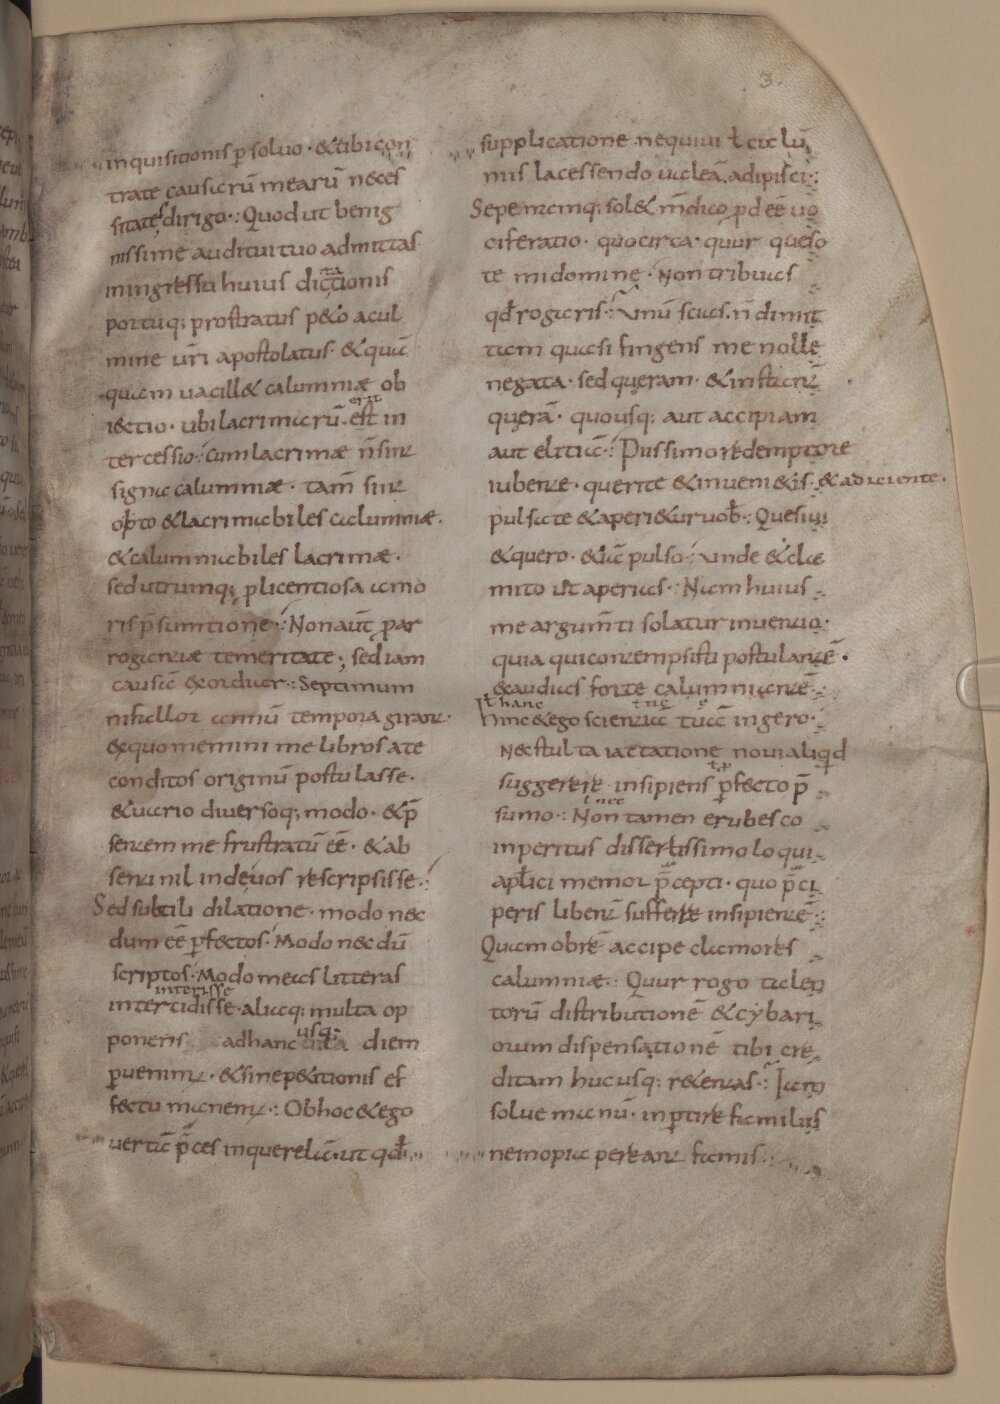 3.
inquisitionis p̄soluo · &tibi con
trate causarū mearū neces
sitates dirigo ·: Quod ut benig
nissime auditui tuo admittas
mingressu huius dictionis
portuq; prostratus p&o acul
mine ur̄i apostolatus · & quā
quam uacill& calumniæ ob
erit
iectio · ubi lacrimarū · est in
tercessio ·: Cum lacrimæ n̄ sint
signa calumniæ · tam̄ sint
opto & lacrimabiles calumniæ ·
& calumniabiles lacrimæ ·
sed utrumq; p licentiosa amo
ris p̄sumtione ·: Non aut̄ par
rogantiæ temeritate ; sed iam
causā exordiar ·: Septimum
ni fallor annū tempora girant ·
ex quo memini me libros a te
conditos originū postulasse ·
& uario diuersoq; modo · & p̄
sentem me frustratū eē · & ab
senti nil inde uos rescripsisse ·:
Sed subtili dilatione · modo nec
dum eē p̄fectos · Modo necdū
scriptos · Modo meas litteras
interisse
intercidisse · aliaq; multa op
usq;
ponens ad hanc diem
puenim · & sine p&itionis ef
fectu manem ·: Ob hoc & ego
uertā p̄ces in querelā · ut qd̄
supplicatione nequiui ł calū
niis lacessendo ualeā adipisci ·:
Sepe namq; sol& mendico pd eē uo
ciferatio · quocirca · quur queso
te mi domine · Non tribuas
qd̄ rogaris ·: Unū scias · n̄ dimit
tam quasi fingens me nolle
negata · sed queram · & instanter
querā · quousq; aut accipiam
aut elitiā ·: Piissimo redemptore
iubente · querite & inueni&is · & ad iciente ·
pulsate & aperi&ur uob̄ ·: Quesiui
& quero · & iā pulso ·: Unde & cla
mito ut aperias ·: Nam huius
me argum̄ti solatur inuentio ·
quia qui contempsisti postulantē ·
& audias forte calumniantē ·:
ł hanc
Hinc & ego scientiā tuā ingero ·
Nec stulta iactatione noui aliqid
suggerere insipiens p̄fecto p̄
ł nec
sumo ·: Non tamen erubesco
inperitus dissertissimo loqui
apl̄ici memor p̄cepti · quo p̄ci
peris libent suffere insipientē ·:
Quam obrē accipe clamores
calumniæ ·: Quur rogo talen
torū distributionē & cybari
orum dispensationē tibi cre
ditam hucusq; r&entas ·: Iam
solue manū · inptire famulis
ne inopia pereant famis ·: